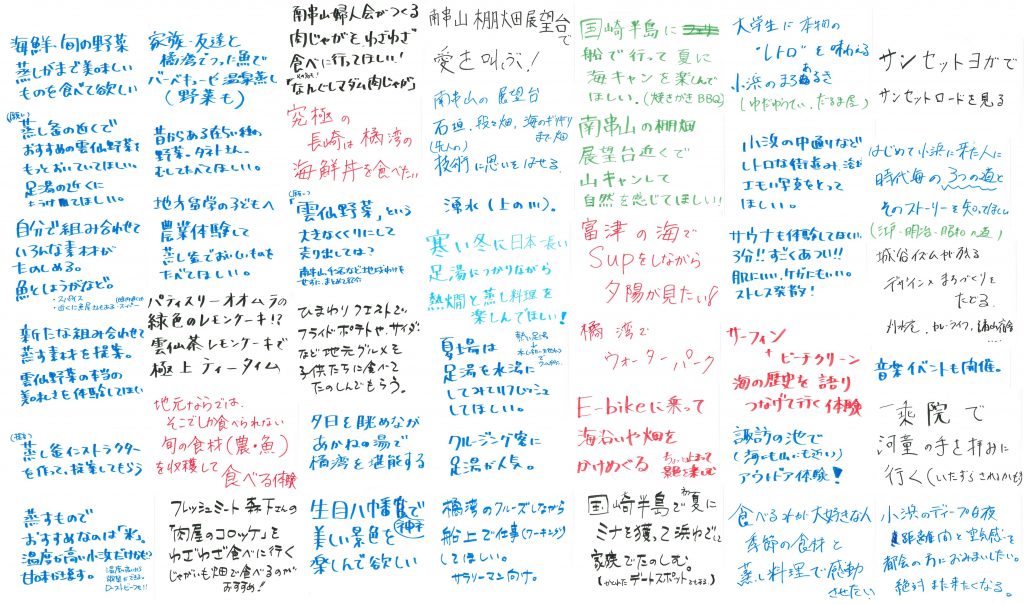 海鮮・旬の野菜
蒸しがまで美味しい
ものを食べて欲しい
蒸し釜の近くで
おすすめの雲仙野菜を
もっとおいていてほしい。
足湯の近くに
もうけてほしい。
自分で組み合わせて
いろんな素材が
たのしめる。
魚としょうがなど。
新たな組み合わせで
蒸す素材を提案。
雲仙野菜の本当の
美味しさを体験してほしい
蒸し釜インストラクター
を作って、提案してもらう
蒸すもので
おすすめなのは「米」。
温度が高い小浜だけなせる
甘味が違う。
家族・友達と
橘湾でつった魚で
バーベキューゼ温泉蒸し
(野菜も)
昔からある在らい種の
野菜。タネトさん。
むしてたべてほしい。
地方留学の子どもへ
農業体験して
蒸し釜でおいしいものを
たべてほしい。
パティスリーオオムラの
緑色のレモンケーキ!?
雲仙茶レモンケーキで
極上ティータイム
地元ならでは、
そこでしか食べられない
旬の食材(農・魚)
を収穫して
食べる体験
フレッシュミート森下さんの
「肉屋のコロッケ」を
わざわざ食べに行く
じゃがいも畑で食べるのが
おすすめ!
南串山婦人会がつくる
肉じゃがを、わざわざ
食べに行ってほしい!
「なんとしてダム肉じゃが」
究極の
長崎は橘湾の
海鮮丼を食べたい
「雲仙野菜」という
大きなくくりにして
売り出しては?
南串山、千々石など地域わけを
せずに、まとめて紹介
ひまわりフェストで、
フライドポテトや、サイダー
など地元グルメを
子供たちに食べて
たのしんでもらう。
夕日を眺めながら
あかねの湯で
橘湾を堪能する
生目八幡宮で
美しい景色を
楽しんで欲しい
南串山棚畑展望台
で
愛を叫ぶ!
南串山の展望台
石垣、段々畑、海のギリギリ
まで畑
(先人の)
技術に思いをはせる。
湧水(上の川)。
寒い冬に日本一長い
足湯につかりながら
熱燗と蒸し料理を
楽しんでほしい!
夏場は
足湯を水湯に
してみてリフレッシュ
してほしい。
クルージング客に
足湯が人気。
橘湾のクルーズしながら
船上で仕事(ワーキング)
してほしい。
サラリーマン向け。
国崎半島に
船で行って夏に
海キャンを楽しんで
ほしい。(焼きがきBBQ)
南串山の棚畑
展望台近くで
山キャンして
自然を感じてほしい!
富津の海で
Supをしながら
夕陽が見たい!
橘湾で
ウォーターパーク
E-bikeに乗って
海沿いや畑を
かけめぐる
国崎半島で夏に
ミナを獲って浜ゆで
家族でたのしむ。
(かくれたデートスポットでもある。)
大学生に本物の
"レトロ"を味わえる
小浜のまちあるき
小浜の中通りなど
レトロな街並み、
エモい写真をとって
ほしい。
サウナも体験してほしい。
3分!!すごくあつい!!
肌にいい、ケガにもいい。
ストレス発散!
サーフィン
+ビーチクリーン
海の歴史を語り
つなげて行く体験
諏訪の池で
(海にも山にも近い)
アウトドア体験!
食べるのが大好きな人
季節の食材と
蒸し料理で感動
させたい
サンセットヨガで
サンセットロードを見る
はじめて小浜に来た人に
時代毎の3つの道と
そのストーリーを知ってほしい
(江戸・明治・昭和の道)
城谷イズムが残る
デザイン×まちづくりを
たどる。
音楽イベントも開催。
一乗院で
河童の手を拝みに
行く(いたずらされるかも)
小浜のディープな夜
距離間と空気感を
都会の方におみまいしたい。
絶対また来たくなる。